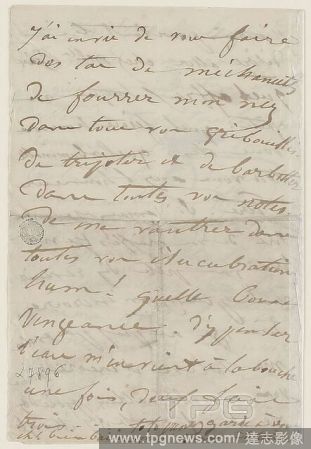 J'ai envie de vous faire
des tas de méchancetés
de fourrer mon nez
dans tous vos gribouillis
de tripoter et de barboter
dans toutes vos notes
de me vautrer dans
toutes vos élucubrations
hum! quelle bonne
vengeance. d'y penser
l'eau m'en vient à la bouche
27896
une fois, deux fois
trois
TPG
www.tpgnews.com / 達志影像